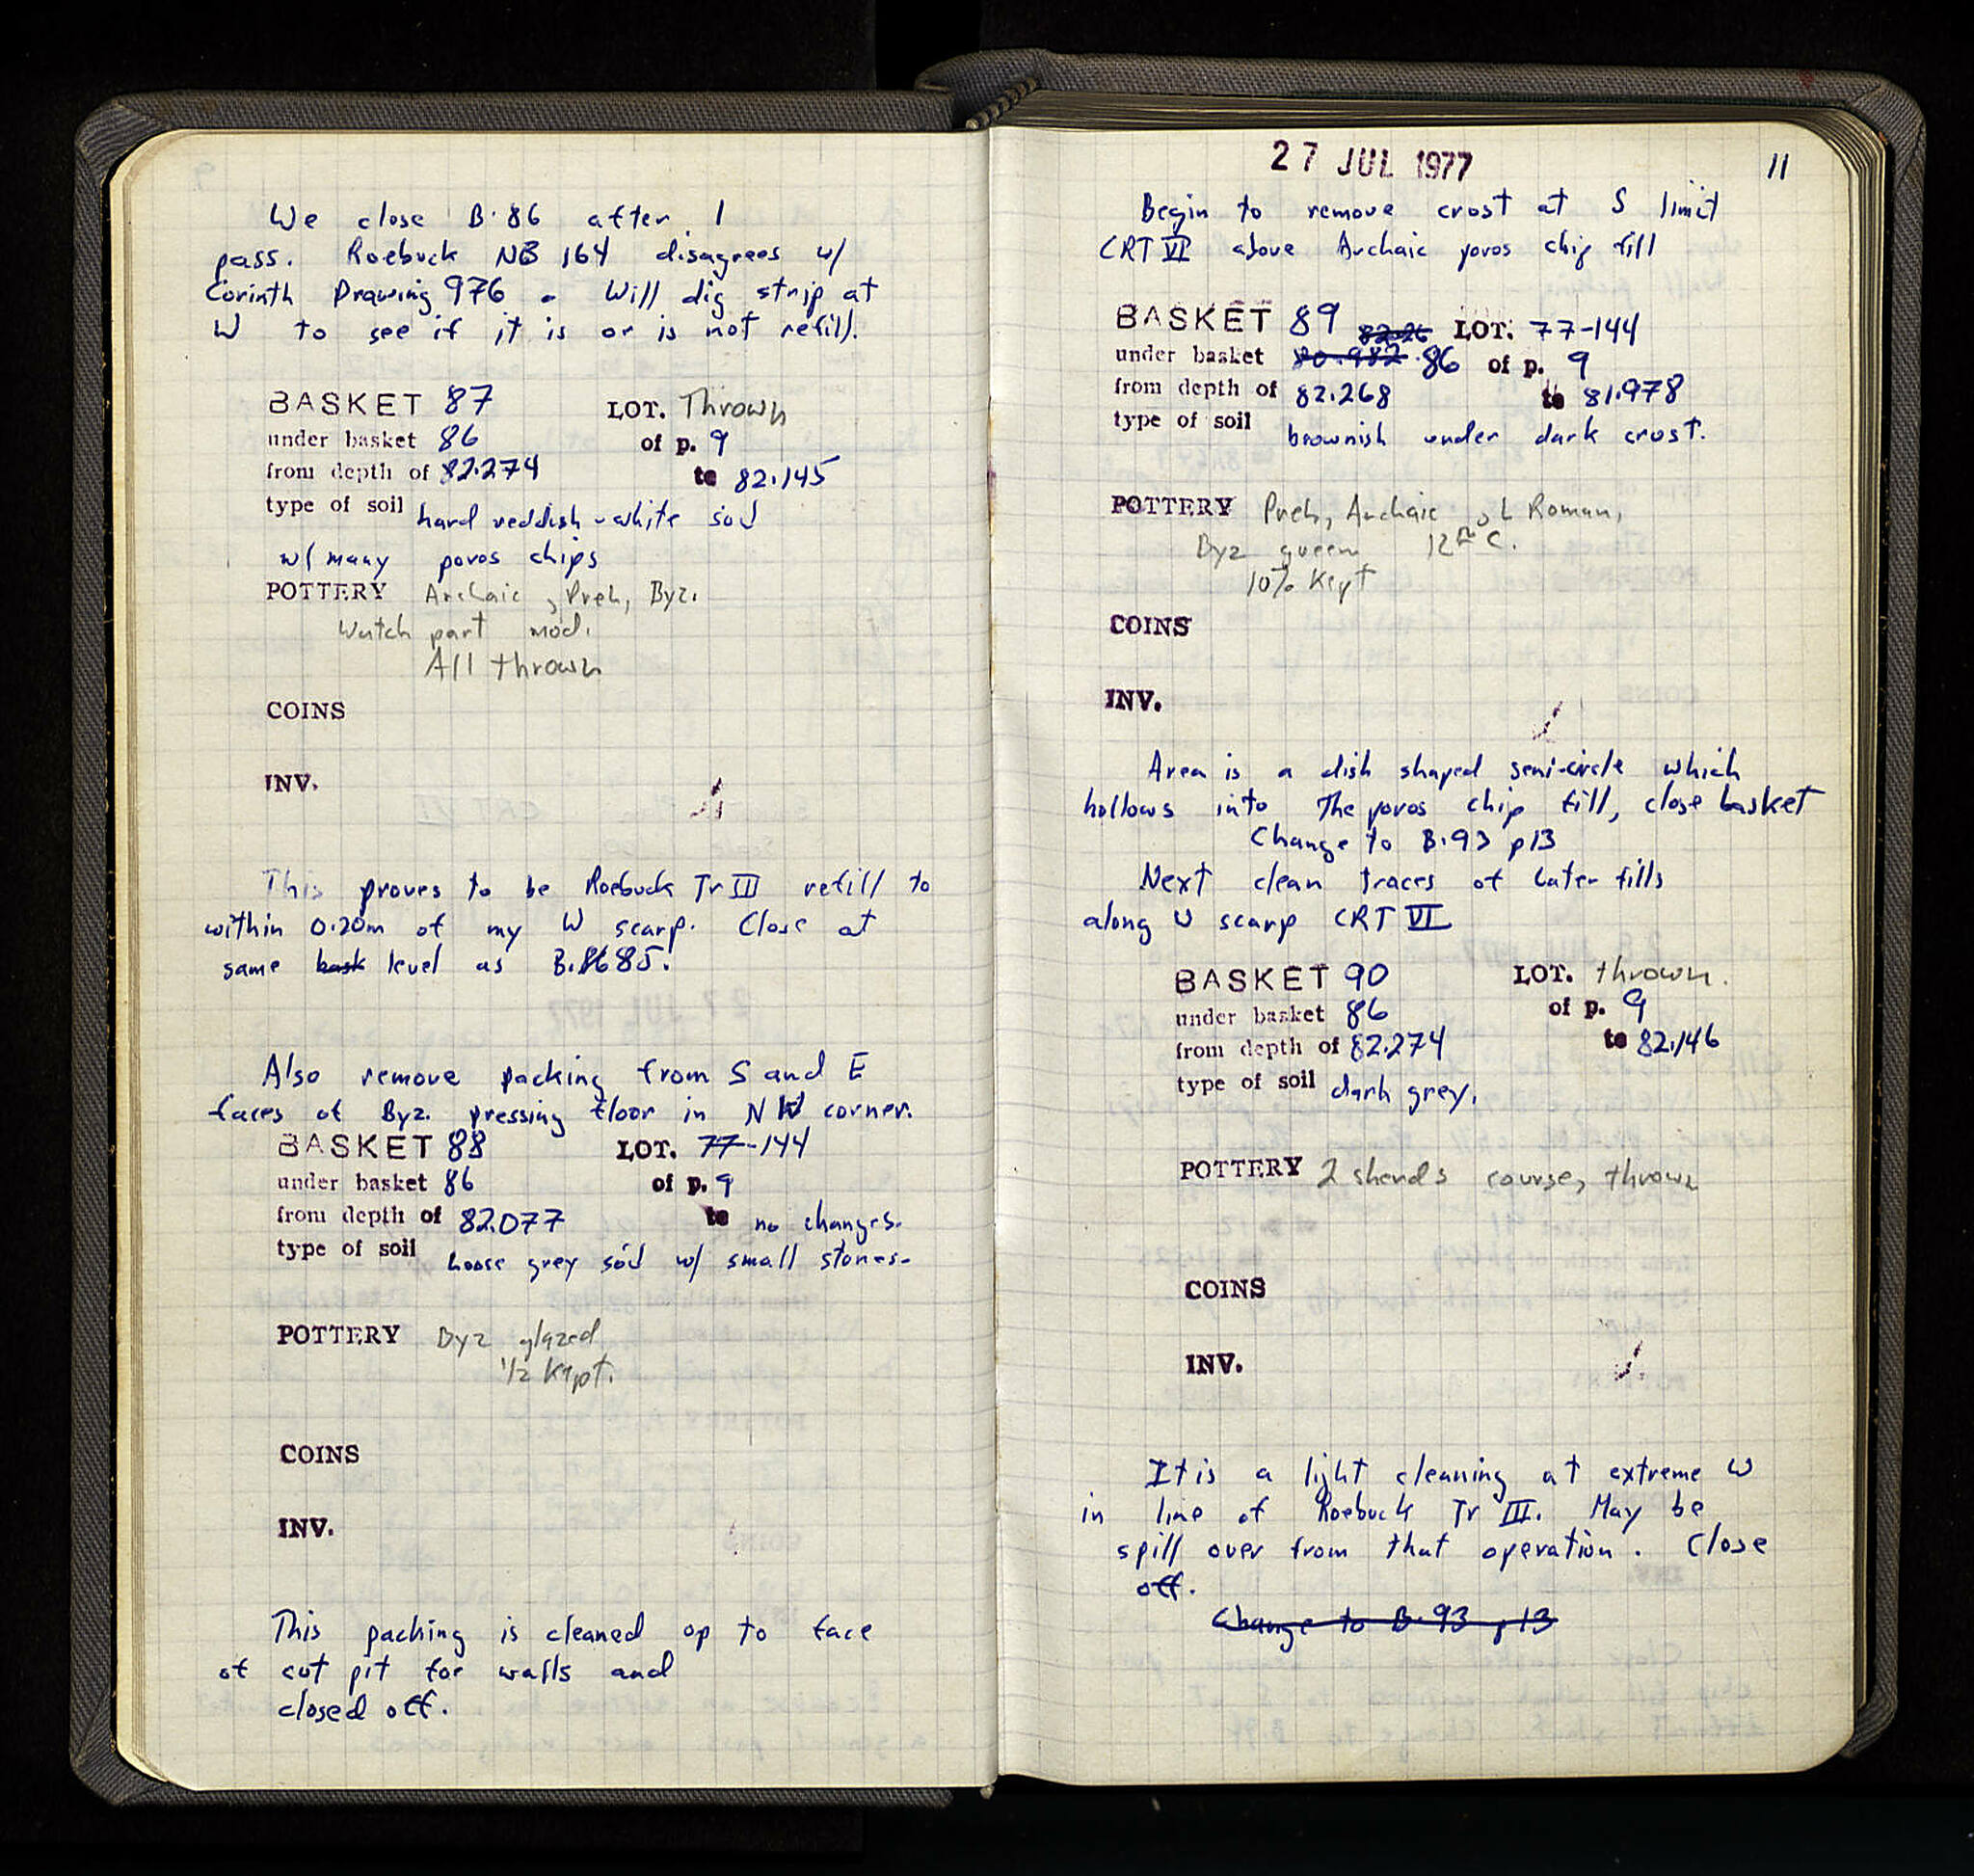 We close B.86 after 1
pass. Roebuck NB 164 disagrees w/
Corinth Drawing 976 - Will dig strip at
W to see if it is or is not refill.
BASKET 87 LOT. Thrown
under basket 86 of p. 9
from depth of 82.274 to 82.145
type of soil hard reddish-white soil
w/ many poros chips
POTTERY Archaic, Preh, Byz.
Watch part mod.
All thrown
COINS
INV.
This proves to be Roebuck Tr III refill to
within 0.20m of my W scarp. Close at
same bask level as B.86 85.
Also remove packing from S and E
faces of Byz. pressing floor in NW corner.
BASKET 88 LOT. 77-144
under basket 86 of p. 9
from depth of 82.077 to no changes.
type of soil loose grey soil w/ small stones.
POTTERY Byz glazed
1/2 Kept.
COINS
INV.
This packing is cleaned up to face
of cut pit for walls and
closed off.
27 JUL 1977
11
Begin to remove crust at S limit
CRT VI above Archaic poros chip fill
BASKET 89 82.26 LOT. 77-144
under basket 80.982 .86 of p. 9
from depth of 82.268 to 81.978
type of soil brownish under dark crust.
POTTERY Preh, Archaic, L Roman,
Byz green 12th c.
10% Kept
COINS
INV.
Area is a dish shaped semi-circle which
hollows into The poros chip fill, close basket
Change to B.93 p13
Next clean traces of later fills
along W scarp CRT VI
BASKET 90 LOT. thrown.
under basket 86 of p. 9
from depth of 82.274 to 82.146
type of soil dark grey.
POTTERY 2 sherds course, thrown
COINS
INV.
It is a light cleaning at extreme W
in line of Roebuck Tr III. May be
spill over from that operation. Close
off.
Change to B.93 p13